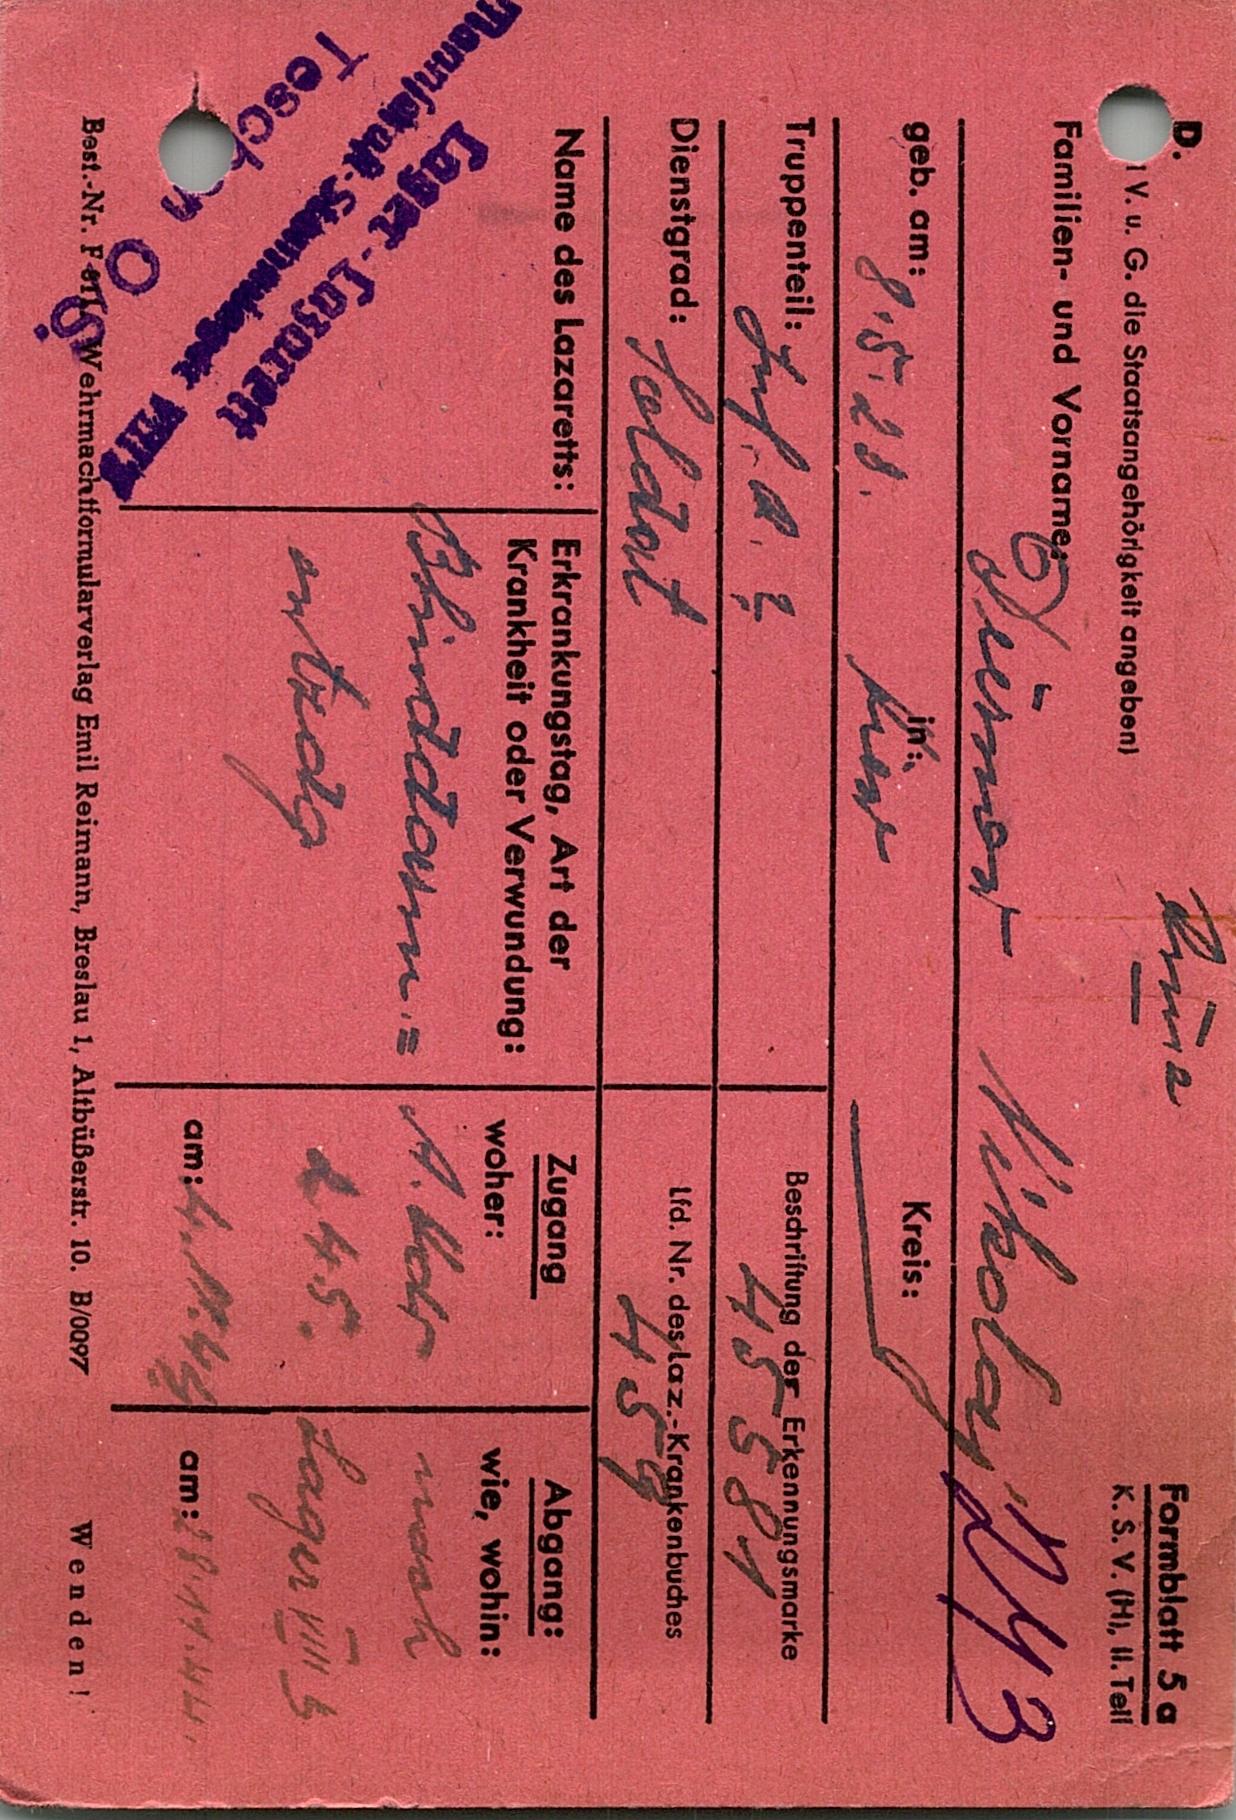 D.
(V. u. G. die Staatsangehörigkeit angeben)
Formblatt 5 a
K. S. V. (H), II. Teil
Familien- und Vorname:
Nikolay
243
geb. am: 8.5.23. in: Kreis:
Truppenteil: Inf. R. ?
Beschriftung der Erkennungsmarke
45581
Dienstgrad: Soldat
Lfd. Nr. des Laz.-Krankenbuches
459
Name des Lazaretts:
Lager-Lazarett
Mannschaft-Stammlager VIII B
Teschen O/S.
Erkrankungstag, Art der
Krankheit oder Verwundung:
Blinddarm=
entzdg
Zugang
woher:
A. Kdo
245.
am:
Abgang:
wie, wohin:
nach
Lager VIII B
am: 28.11.44.
Best.-Nr. F Wehrmachtformularverlag Emil Reimann, Breslau 1, Altbüßerstr. 10. B/0097
Wenden!